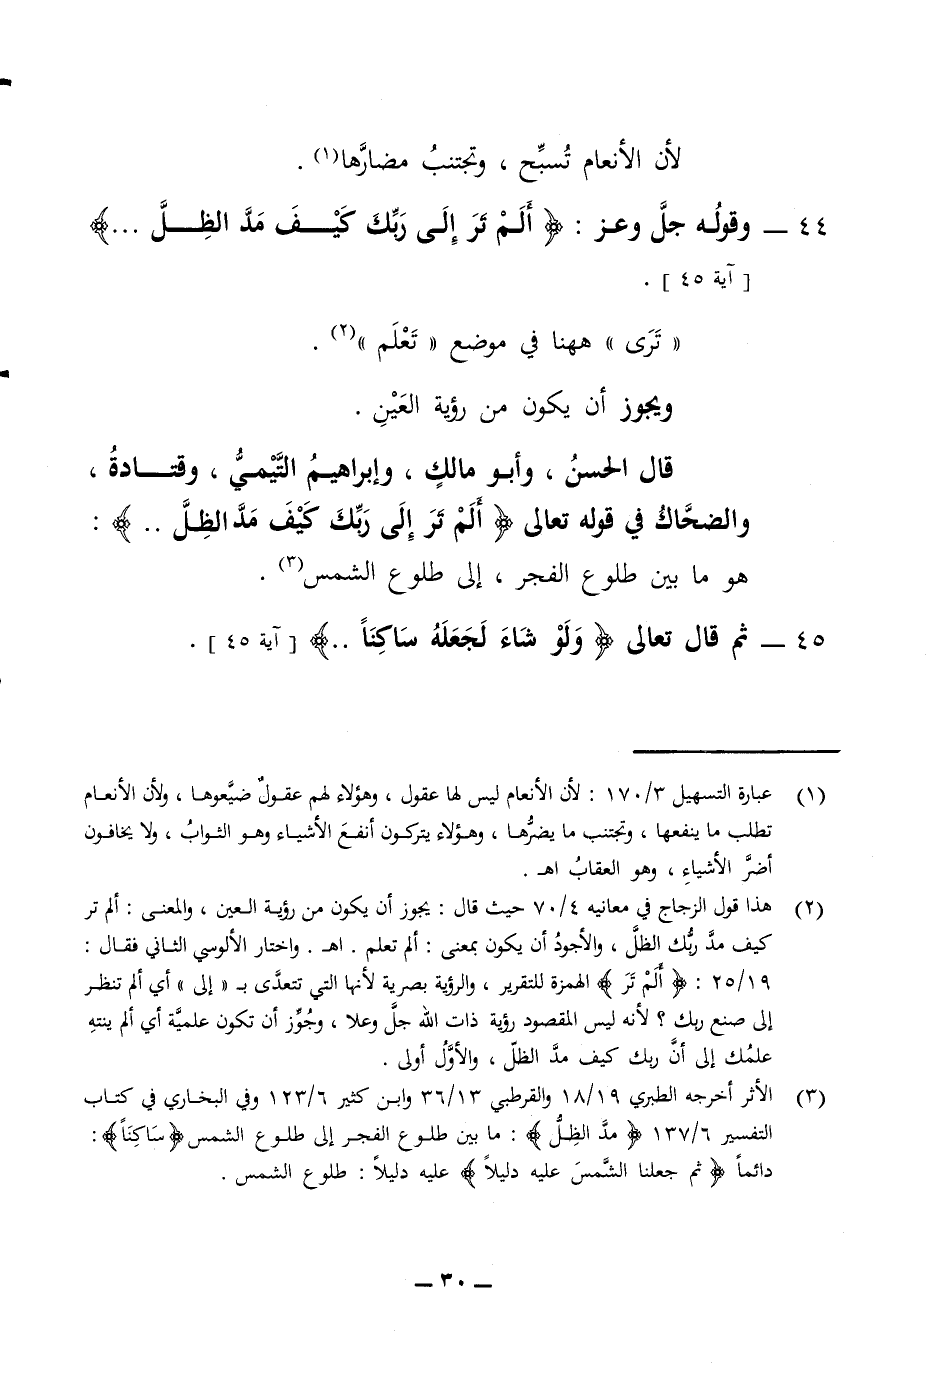 لأن الأنعام تُسبِّح ، وتجتنبُ مضارَّها(١) .
٤٤ ــ وقولُه جلَّ وعز : ﴿ أَلَمْ تَرَ إِلَى رَبِّكَ كَيْفَ مَدَّ الظِلَّ ...﴾
[ آية ٤٥ ] .
« تَرَى » ههنا في موضع « تَعْلَم »(٢) .
ويجوز أن يكون من رؤية العَيْنِ .
قال الحسنُ ، وأبو مالكٍ ، وإبراهيمُ التَّيْميُّ ، وقتادةُ ،
والضحَّاكُ في قوله تعالى ﴿ أَلَمْ تَرَ إِلَى رَبِّكَ كَيْفَ مَدَّ الظِلَّ .. ﴾ :
هو ما بين طلوع الفجر ، إلى طلوع الشمس(٣) .
٤٥ ــ ثم قال تعالى ﴿ وَلَوْ شَاءَ لَجَعَلَهُ سَاكِنَاً ..﴾ [ آية ٤٥ ] .
(١) عبارة التسهيل ١٧٠/٣ : لأن الأنعام ليس لها عقول ، وهؤلاء لهم عقولٌ ضيَّعوها ، ولأن الأنعام
تطلب ما ينفعها ، وتجتنب ما يضرُّها ، وهؤلاء يتركون أنفعَ الأشياء وهو الثوابُ ، ولا يخافون
أضرَّ الأشياءِ ، وهو العقابُ اهـ .
(٢) هذا قول الزجاج في معانيه ٧٠/٤ حيث قال : يجوز أن يكون من رؤية العين ، والمعنى : ألم تر
كيف مدَّ ربُّك الظلَّ ، والأجودُ أن يكون بمعنى : ألم تعلم . اهـ . واختار الألوسي الثاني فقال :
٢٥/١٩ : ﴿ أَلَمْ تَرَ ﴾ الهمزة للتقرير ، والرؤية بصرية لأنها التي تتعدَّى بـ « إلى » أي ألم تنظر
إلى صنع ربك ؟ لأنه ليس المقصود رؤية ذات الله جلَّ وعلا ، وجُوِّز أن تكون علميَّة أي ألم ينتهِ
علمُك إلى أنَّ ربك كيف مدَّ الظلّ ، والأوَّلُ أولى .
(٣) الأثر أخرجه الطبري ١٨/١٩ والقرطبي ٣٦/١٣ وابن كثير ١٢٣/٦ وفي البخاري في كتاب
التفسير ١٣٧/٦ ﴿ مدَّ الظِلُّ ﴾ : ما بين طلوع الفجر إلى طلوع الشمس ﴿سَاكِنَاً﴾ :
دائماً ﴿ ثم جعلنا الشَّمسَ عليه دليلاً ﴾ عليه دليلاً : طلوع الشمس .
ــ ٣٠ ــ